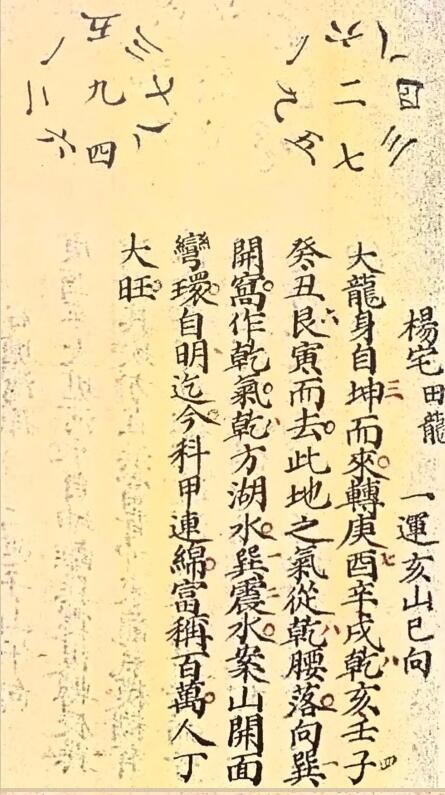 楊宅田龍 一運亥山巳向
大龍身自坤而來轉庚酉辛戌乾亥壬子
三
七
八
四
癸丑艮寅而去此地之氣從乾腰落向巽
六
八
一
開窩作乾氣乾方湖水巽震水案山開面
八
一
二
彎環自明迄今科甲連綿富稱百萬人丁
大旺
八六一
九二四
五七三
一五三
二九七
六四八